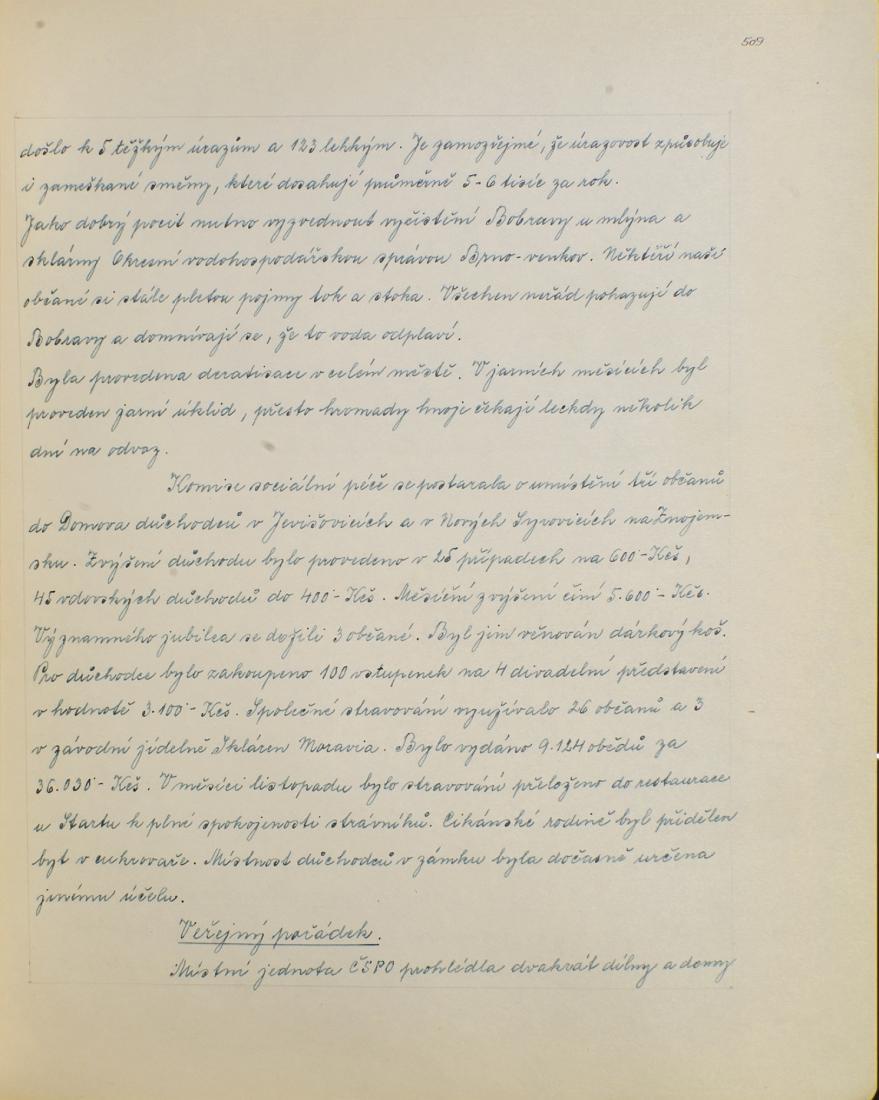 509
došlo k 5 těžkým úrazům a 123 lehkým. Je samozřejmé, že úrazovost způsobuje
i zameškané směny, které dosahují průměrně 5-6 tisíc za rok.
Jako dobrý pocit nutno vyzvednout vyčistění Bobravy u mlýna a
sklárny Okresní vodohospodářskou správou Brno-venkov. Někteří naši
občané si stále pletou pojmy tok a stoka. Všechen neřád pohazují do
Bobravy a domnívají se, že to voda odplaví.
Byla provedena deratisace v celém městě. V jarních měsících byl
proveden jarní úklid, přesto hromady hnoje čekají leckdy několik
dní na odvoz.
Komise sociální péče se postarala o umístění tří občanů
do Domova důchodců v Jevišovicích a v Nových Syrovicích na Znojem-
sku. Zvýšení důchodu bylo provedeno v 25 případech na 600·- Kčs,
45 vdovských důchodů do 400·- Kčs. Měsíční zvýšení činí 5.600·- Kčs.
Významného jubilea se dožili 3 občané. Byl jim věnován dárkový koš.
Pro důchodce bylo zakoupeno 100 vstupenek na 4 divadelní představení
v hodnotě 3.100·- Kčs. Společné stravování využívalo 26 občanů a 3
v závodní jídelně Skláren Moravia. Bylo vydáno 9.124 obědů za
36.030·- Kčs. V měsíci listopadu bylo stravování přeloženo do restaurace
u Startu k plné spokojenosti strávníků. Cikánské rodině byl přidělen
byt v cukrovaře. Místnost důchodců v zámku byla dočasně určena
jinému účelu.
Veřejný pořádek.
Místní jednota ČSPO prohlédla dvakrát dílny a domy